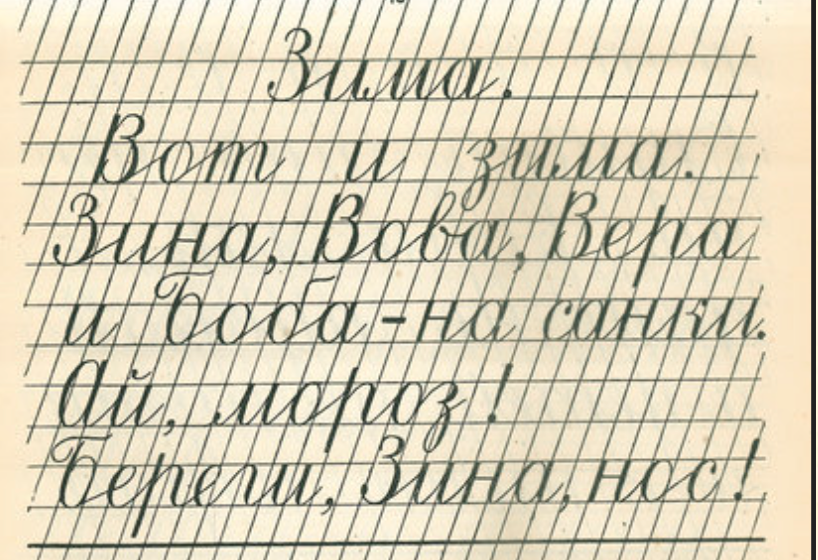 Зима.
Вот и зима.
Зина, Вова, Вера
и Боба - на санки.
Ай, мороз!
Береги, Зина, нос!